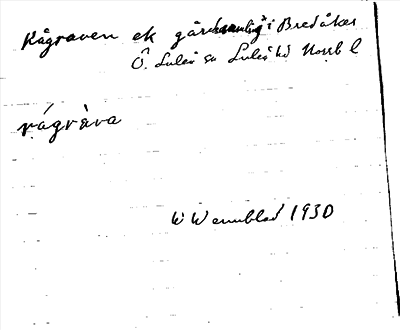 Rågraven ek gårdsnamn i Bredåker
Ö. Luleå sn Luleå hd Norrb l
rágràva
W Wennblad 1930